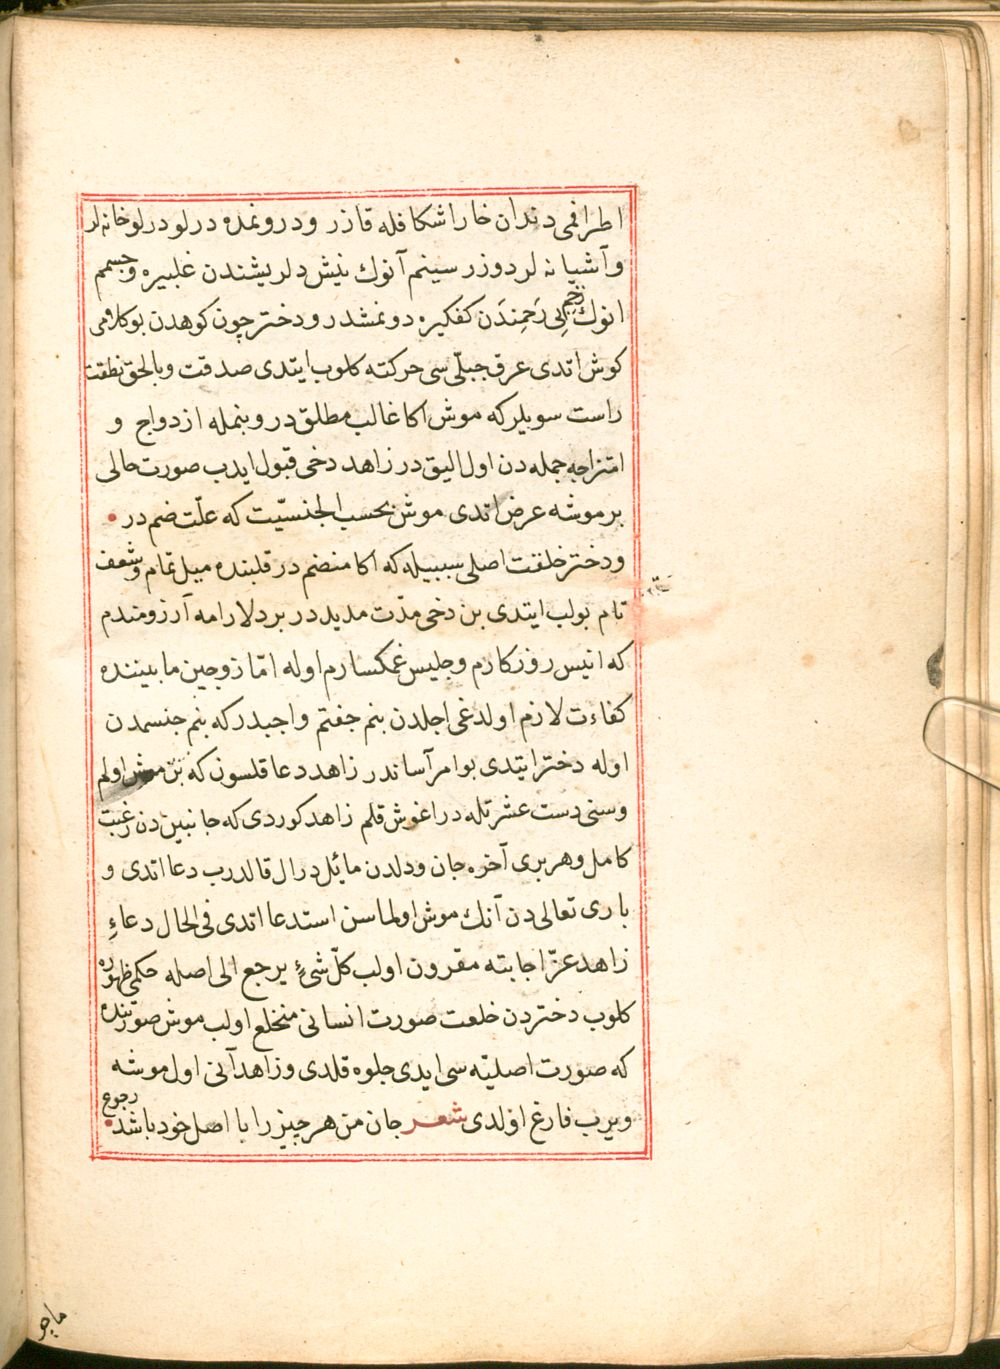 اطرافمی دندان خارا شکافله قازر و درونمده درلو درلو خانه لر
و آشیانه لر دوزر سینم آنوك نیش دلریشندن غلبیره و جسمم
انوك زخم بی رحمندن کفکیره دونمشدر و دختر چون کوهدن بو کلامی
کوش اتدی عرق جبلّی سی حرکته کلوب ایتدی صدقت و بالحق نطقت
راست سویلر که موش اکا غالب مطلق در و بنمله ازدواج و
امتزاجه جمله دن اول الیق در زاهد دخی قبول ایدب صورت حالی
بر موشه عرض اتدی موش بحسب الجنسیّت که علّت ضم در
و دختر خلقت اصلی سببیله که اکا منضم در قلبنده میل تمام و شعف
تام بولب ایتدی بن دخی مدّت مدید در بر دلارامه آرزومندم
که انیس روزکارم و جلیس غمکسارم اوله امّا زوجین مابیننده
کفاءت لازم اولدغی اجلدن بنم جفتم واجبدر که بنم جنسمدن
اوله دختر ایتدی بو امر آساندر زاهد دعا قلسون که بن موش اولم
و سنی دست عشرتله در اغوش قلم زاهد کوردی که جانبین دن رغبت
کامل و هر بری آخره جان و دلدن مائل در ال قالدرب دعا اتدی و
باری تعالی دن آنك موش اولماسن استدعا اتدی فی الحال دعاءِ
زاهد عزّ اجابته مقرون اولب کلّ شیءٍ یرجع الی اصله حکمی ظهوره
کلوب دختردن خلعت صورت انسانی منخلع اولب موش صورتنده
که صورت اصلیّه سی ایدی جلوه قلدی و زاهد آنی اول موشه
ویرب فارغ اولدی شعر جان من هر چیز را با اصل خود باشد رجوع
ماجو